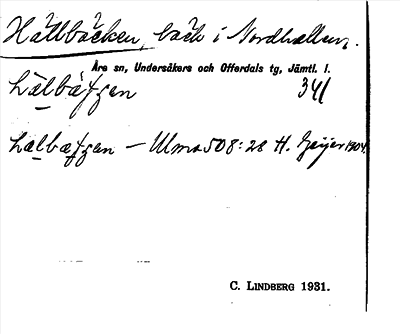 Hällbäcken, bäck i Nordhallen.
Åre sn, Undersåkers och Offerdals tg, Jämtl. l.
hälbäfʒen 341
hælbæfʒen – Ulma 508:28 H. Geijer 1904
C. LINDBERG 1931.